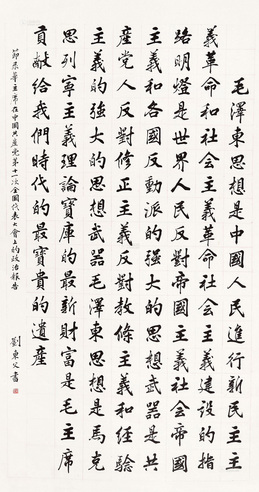 毛澤東思想是中國人民進行新民主主
義革命和社會主義革命社會主義建設的指
路明燈是世界人民反對帝國主義社會帝國
主義和各國反動派的强大的思想武器是共
產党人反對修正主義反對教條主義和經驗
主義的强大的思想武器毛澤東思想是馬克
思列寧主義理論寶庫的最新財富是毛主席
貢献給我們時代的最寶貴的遺產
節录華主席在中國共產党第十一次全國代表大會上的政治報告
劉東父書